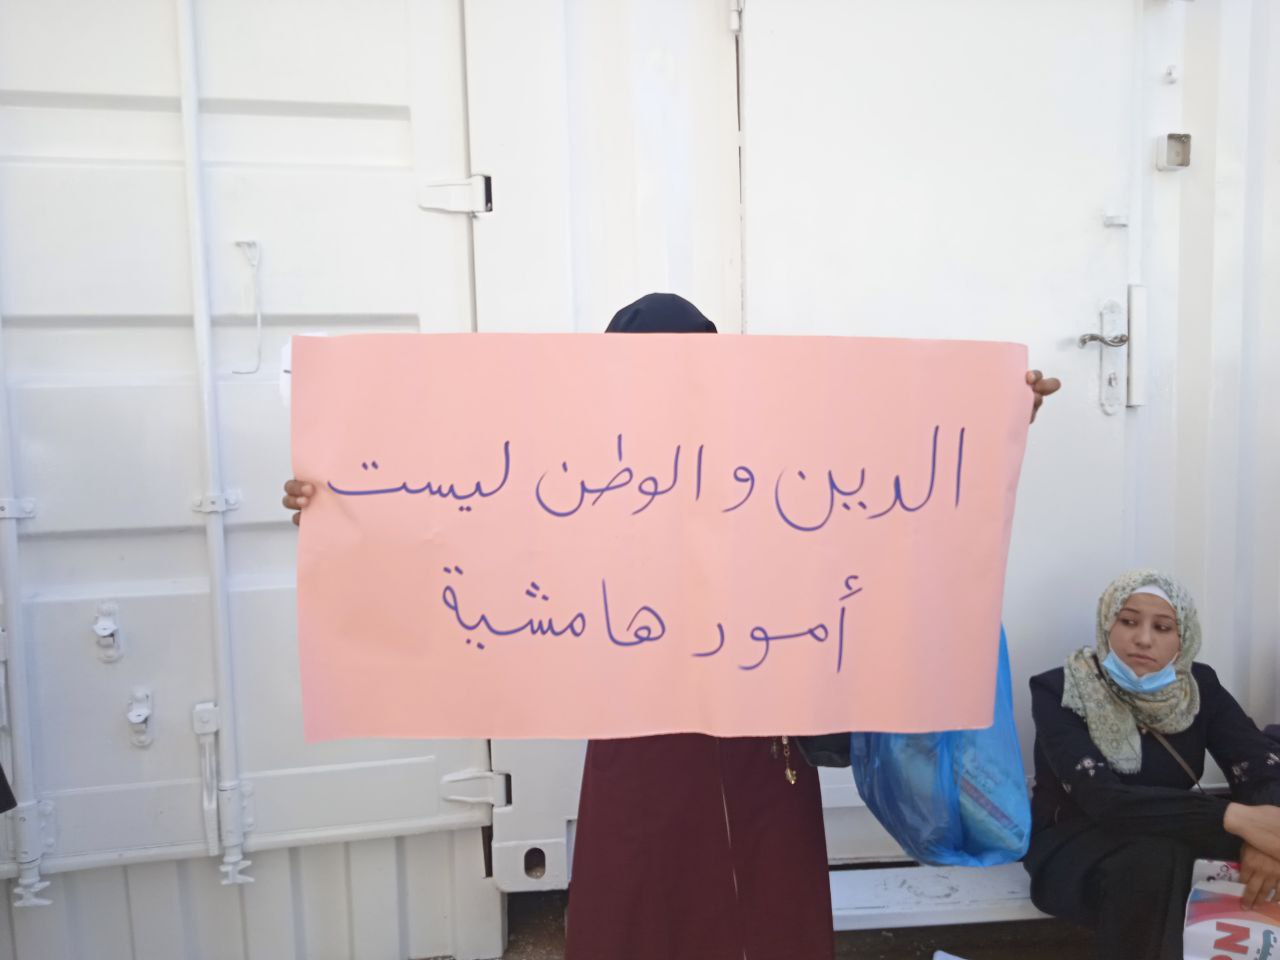 الدين والوطن ليست
أمور هامشية
NO